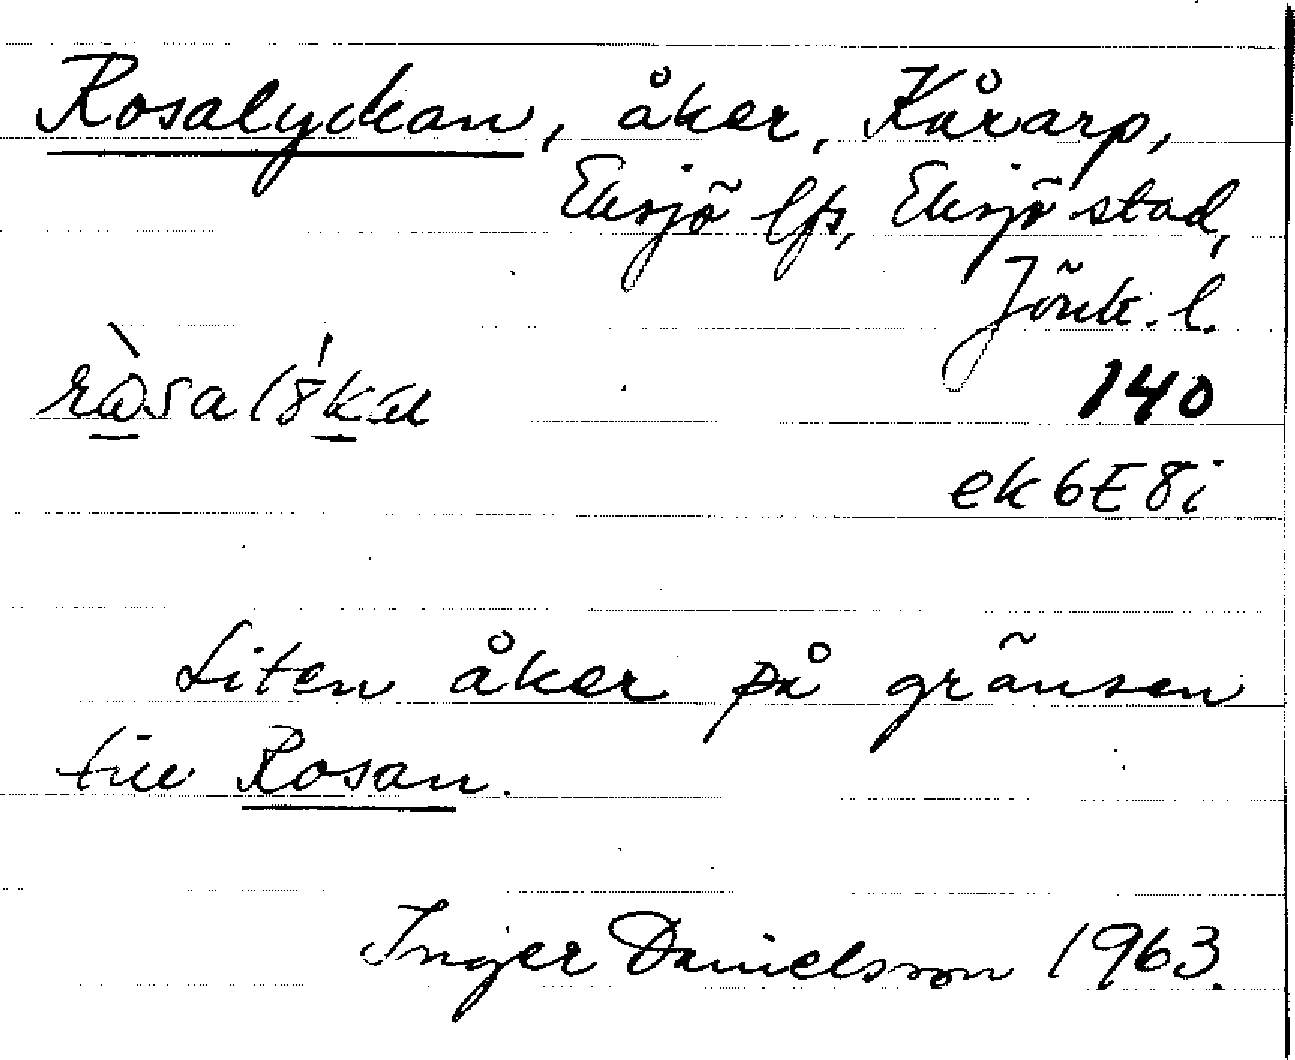 Rosalyckan, åker, Kårarp,
Eksjö lfs, Eksjö stad,
Jönk. l.
140
ek 6E8i
Liten åker på gränsen
till Rosan.
Inger Danielsson 1963.